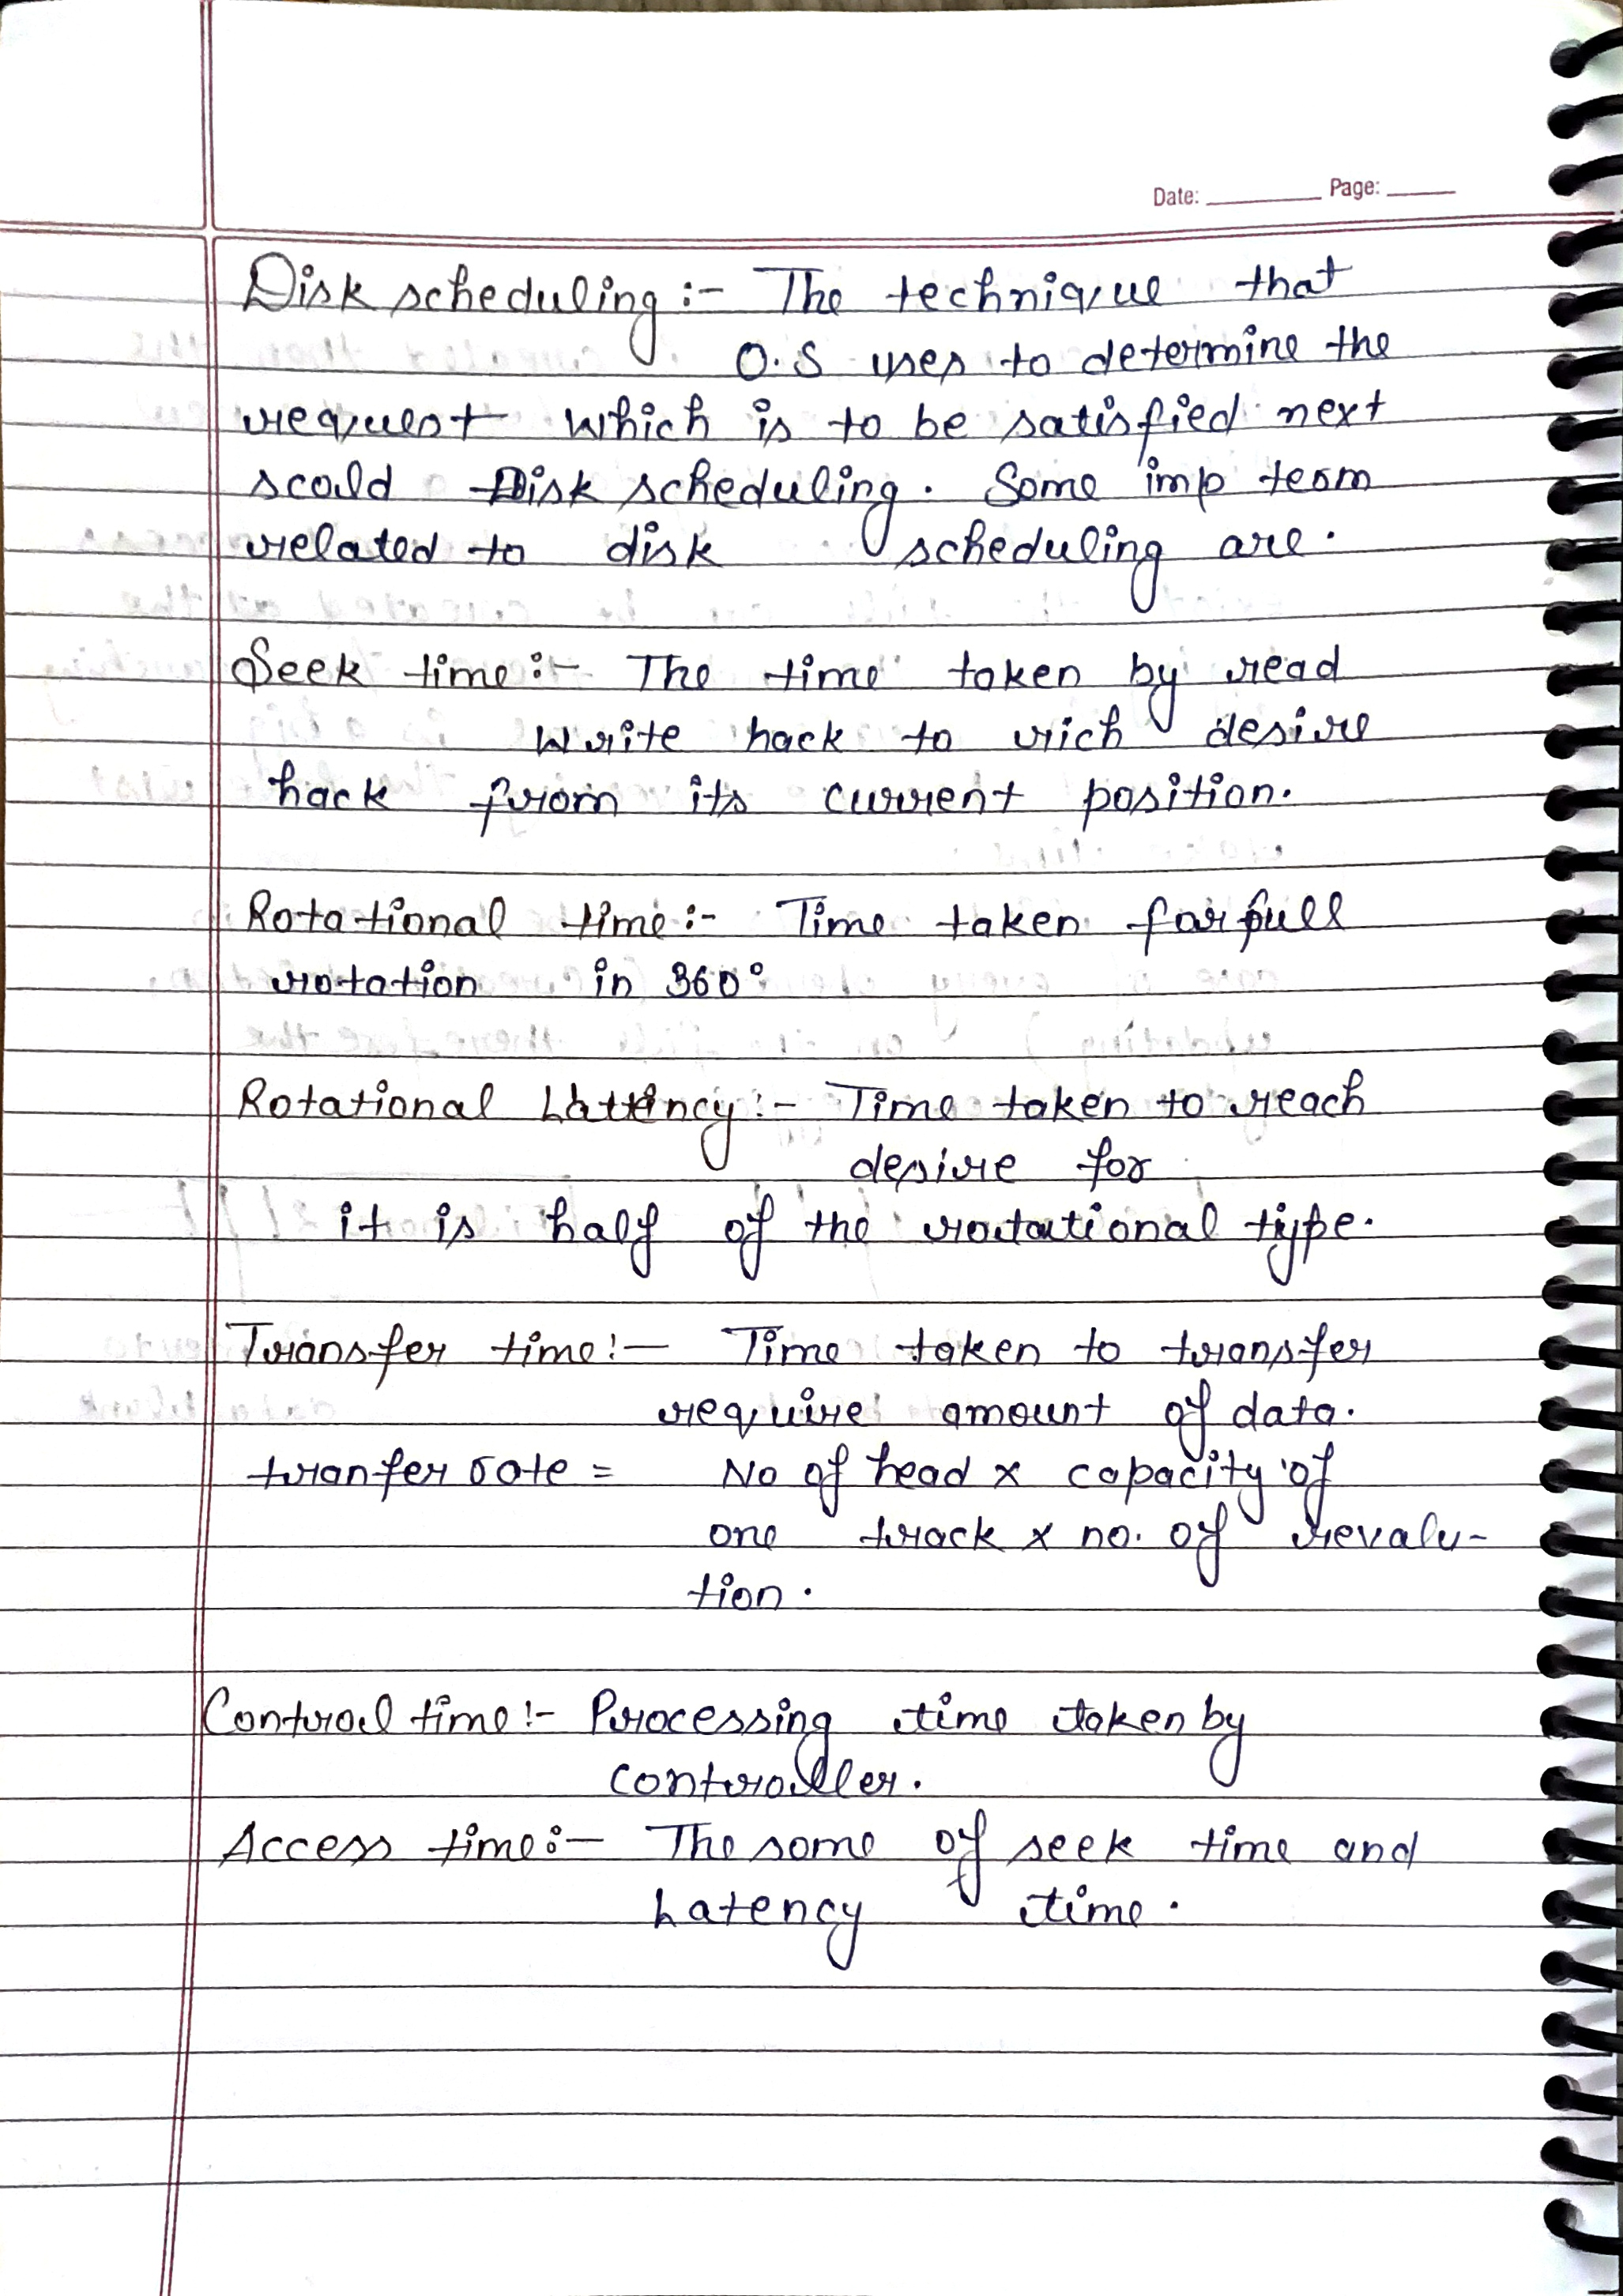 Date: Page:
Disk scheduling :- The technique that
O.S uses to determine the
request which is to be satisfied next
scald Disk scheduling. Some imp team
related to disk scheduling are.
Seek time :- The time taken by read
write hack to rich desire
hack from its current position.
Rotational time :- Time taken far full
rotation in 360°
Rotational Lattency :- Time taken to reach
desire for
it is half of the rotational type.
Transfer time :- Time taken to transfer
require amount of data.
tranfer rate = No of head x capacity of
one track x no. of revalu-
tion.
Control time :- Processing time taken by
controller.
Access time :- The some of seek time and
Latency time.